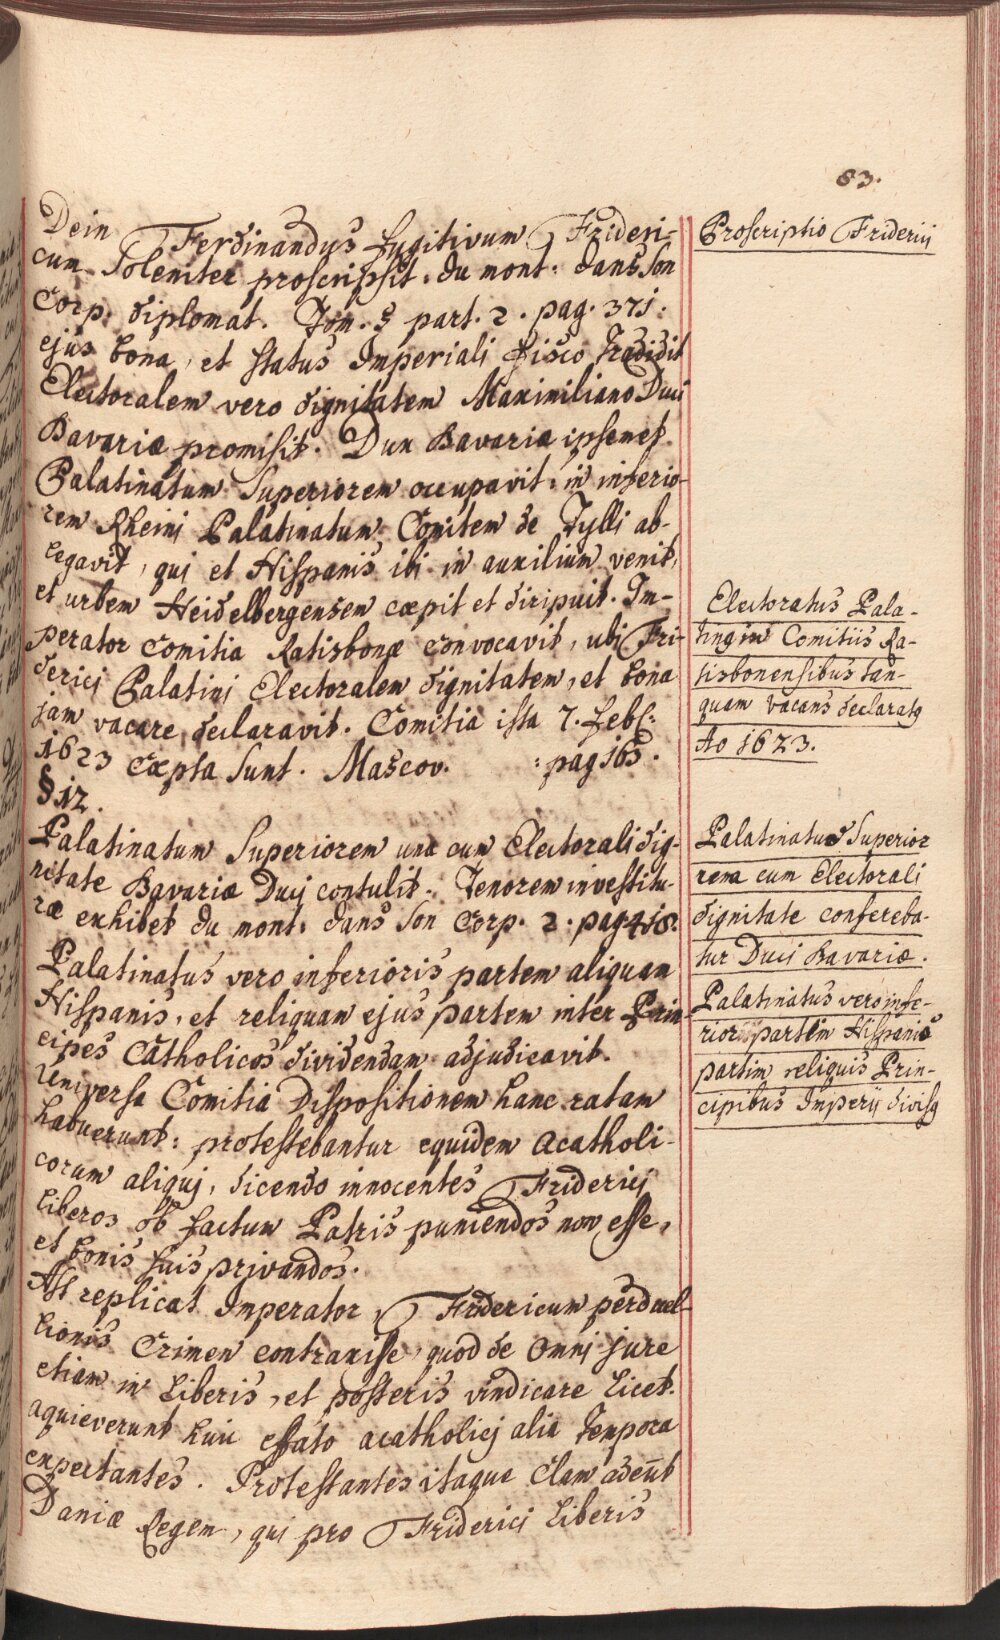 83.
Dein Ferdinandus fugitivum Frideri-
cum Solemiter proscripsit. du mont: dans Son
Corp. diplomat. Tom. 5 part. 2. pag. 371:
ejus bona, et status Imperiali fisco Tradidit
Electoralem vero dignitatem Maximiliano Duci
Bavariæ promisit. Dux Bavariæ ipsemet
Palatinatum Superiorem occupavit, in inferio-
rem Rheini Palatinatum Comitem de Tylli ab-
legavit, qui et Hispanis ibi in auxilium venit,
et urbem Heidelbergensem cæpit et diripuit. Im-
perator Comitia Ratisbonæ convocavit, ubi Fri-
derici Palatini Electoralem dignitatem, et bona
jam vacare declaravit. Comitia ista 7. febr:
1623 cæpta sunt. Mascov. : pag 165.
§ 12.
Palatinatum Superiorem una cum Electorali dig-
nitate Bavariæ Duci contulit. Tenorem investitu-
ræ exhibet du mont. dans Son Corp. 2. pag 418.
Palatinatus vero inferioris partem aliquam
Hispanis, et reliquam ejus partem inter Prin-
cipes Catholicos dividendam adjudicavit.
Universa Comitia Dispositionem hanc ratam
habuerunt: protestebantur equidem acatholi-
corum aliqui, dicendo innocentes Friderici
liberos ob factum Patris puniendos non esse,
et bonis suis privandos.
Ast replicat Imperator, Fridericum perduel-
lionis Crimen contraxisse, quod de omni jure
etiam in Liberis, et posteris vindicare licet.
aquieverunt huic effato acatholici alia Tempora
expectantes. Protestantes itaque clam adeunt
Daniæ Regem, qui pro Friderici Liberis
Proscriptio Friderici
Electoratus Pala-
tinus in Comitiis Ra-
tisbonensibus tan-
quam vacans declaratus
Ao 1623.
Palatinatus Superior
rena cum Electorali
dignitate confereba-
tur Duci Bavariæ.
Palatinatus vero infe-
rioris partem Hispanis
partim reliquis Prin-
cipibus Imperii divisus